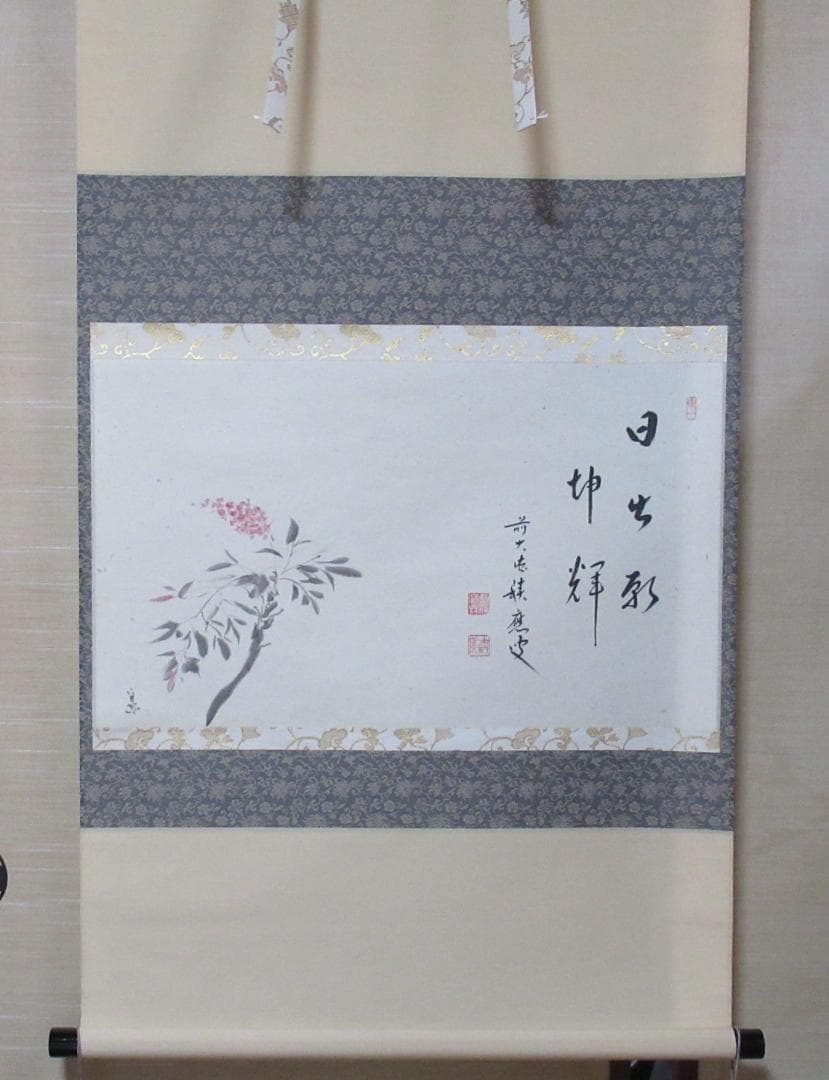 日出乾
坤輝
前大徳積應叟